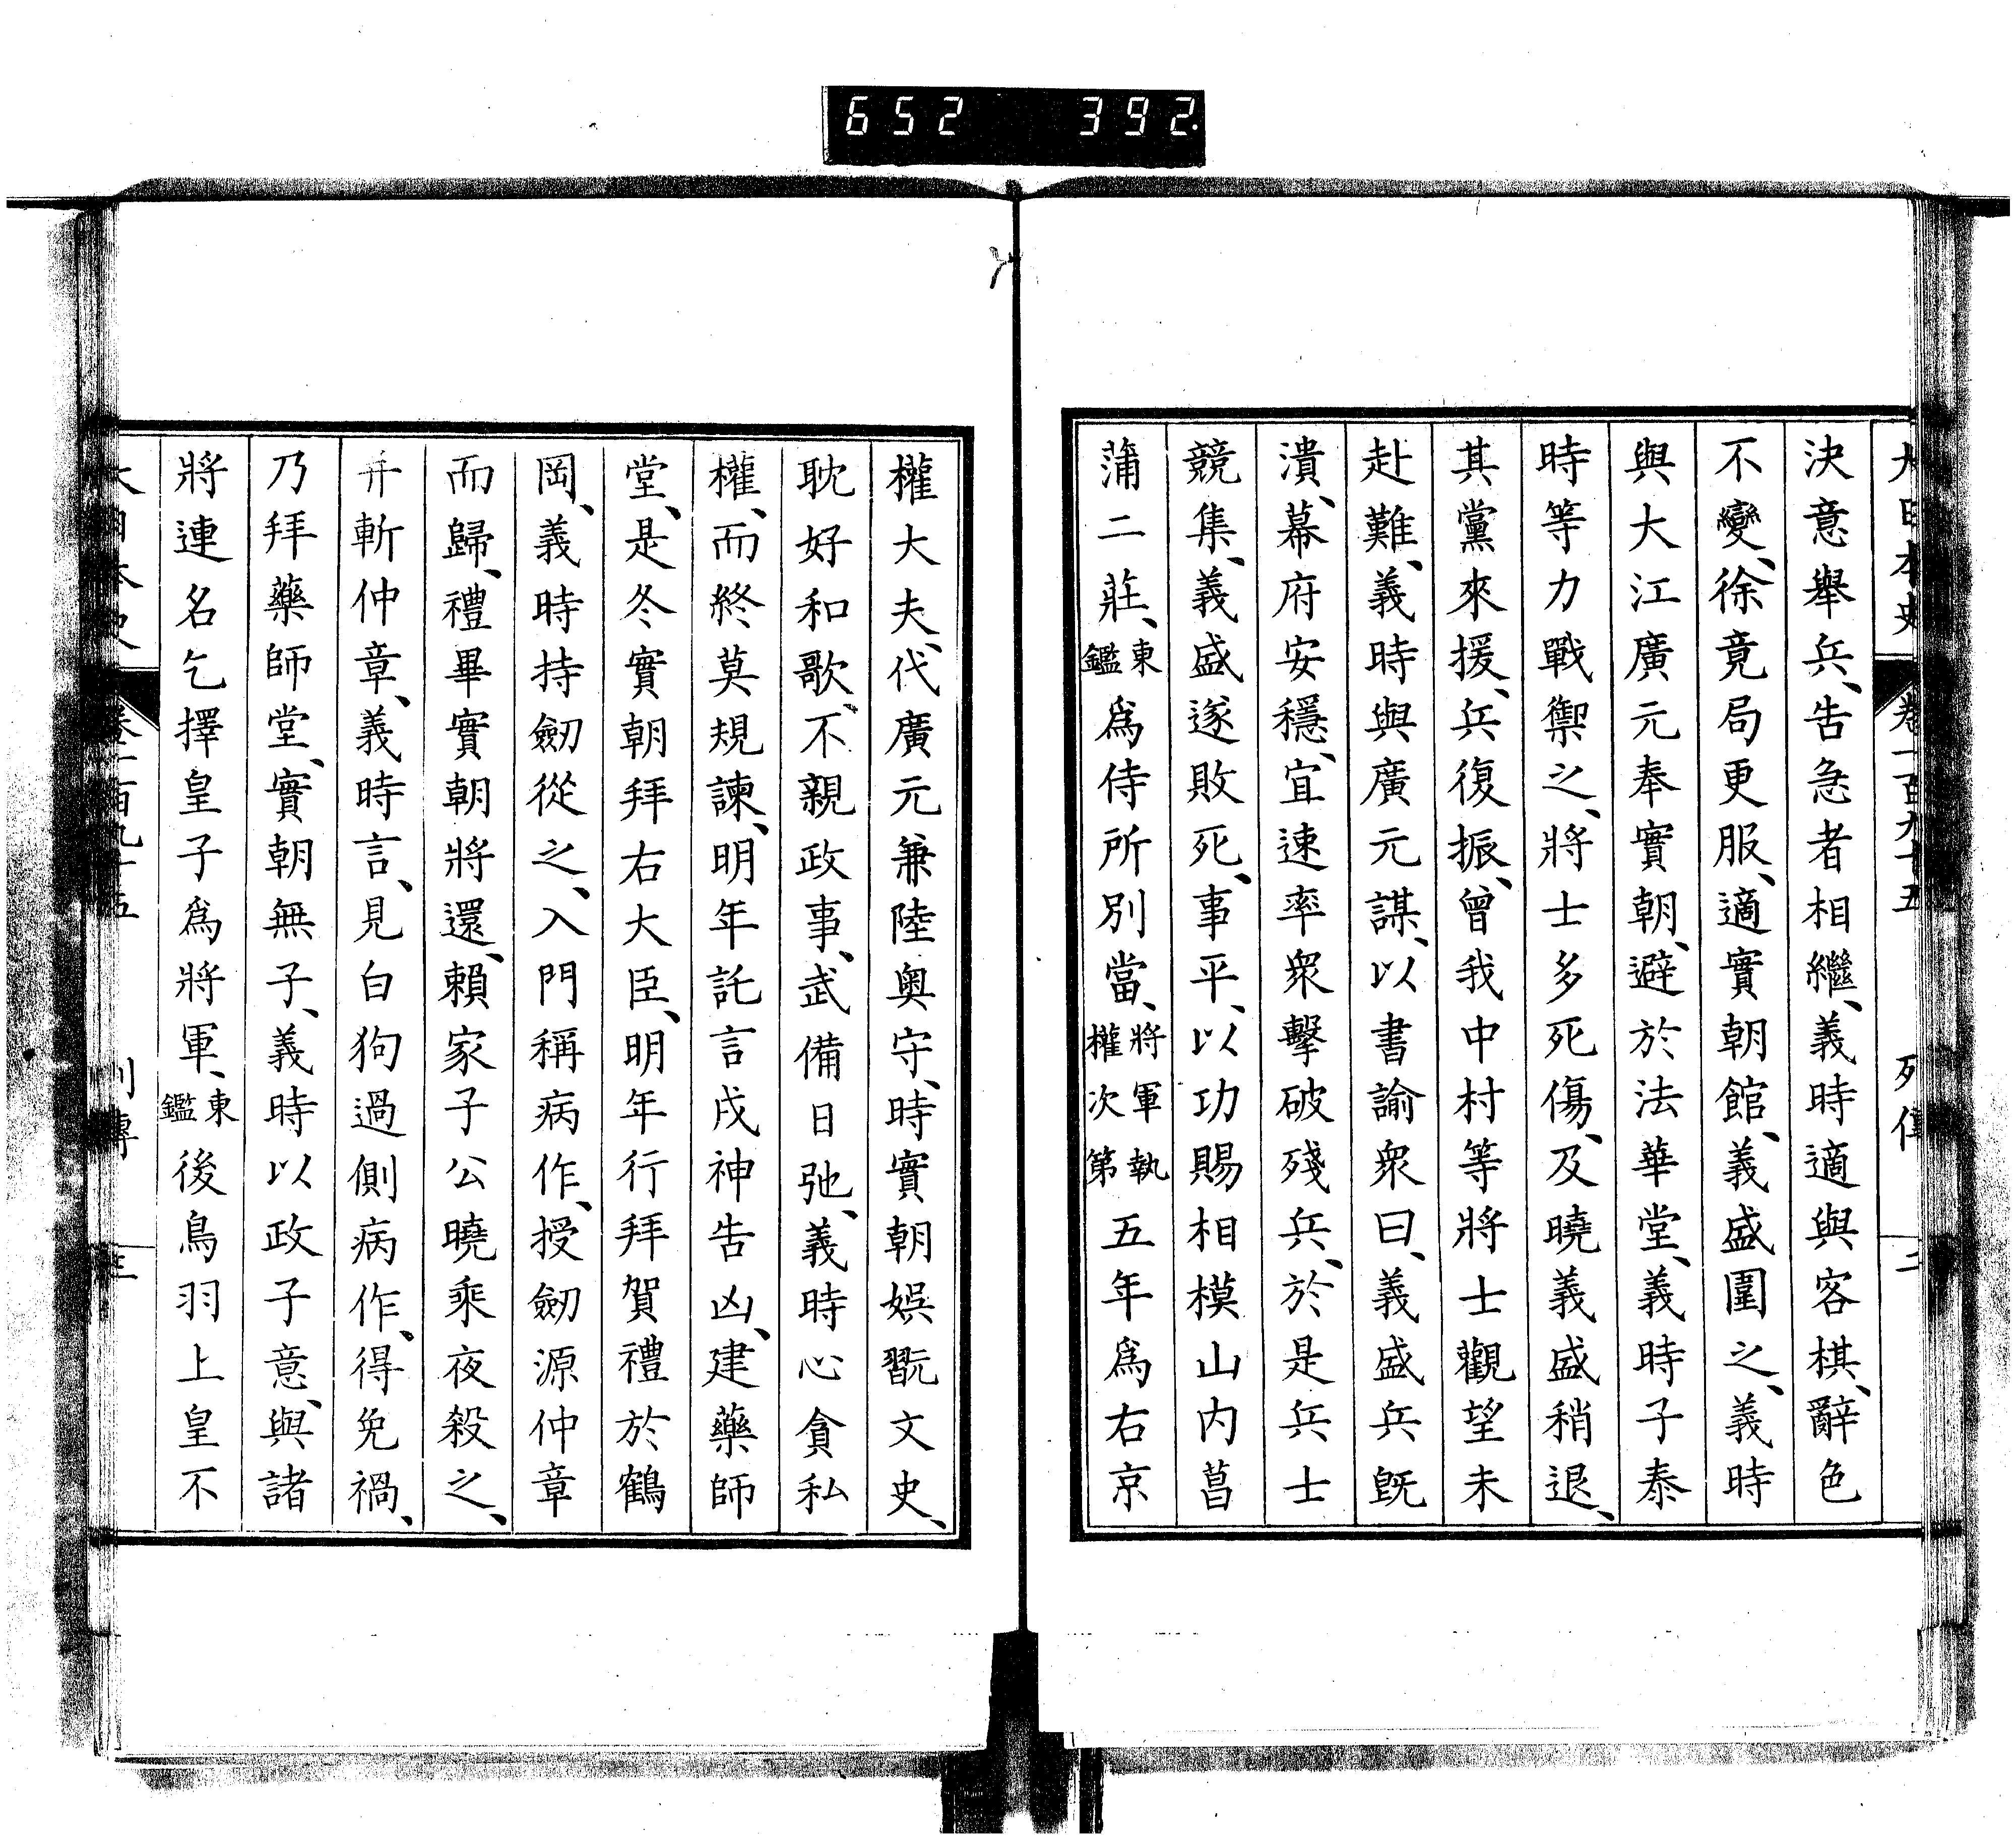 652 392.
大日本史 卷一百九十五 列傳 二
決意舉兵、告急者相繼、義時適與客棋、辭色
不變、徐竟局更服、適實朝館、義盛圍之、義時
與大江廣元奉實朝、避於法華堂、義時子泰
時等力戰禦之、將士多死傷、及曉義盛稍退、
其黨來援、兵復振、曾我中村等將士觀望未
赴難、義時與廣元謀、以書諭衆曰、義盛兵既
潰、幕府安穩、宜速率衆擊破殘兵、於是兵士
競集、義盛遂敗死、事平、以功賜相模山内菖
蒲二莊、東鑑為侍所別當、將軍執權次第五年為右京
權大夫、代廣元兼陸奥守、時實朝娯翫文史、
耽好和歌、不親政事、武備日弛、義時心貪私
權、而終莫規諫、明年託言戌神告凶、建藥師
堂、是冬實朝拜右大臣、明年行拜賀禮於鶴
岡、義時持劒從之、入門稱病作、授劒源仲章
而歸、禮畢實朝將還、賴家子公曉乘夜殺之、
并斬仲章、義時言、見白狗過側病作、得免禍、
乃拜藥師堂、實朝無子、義時以政子意、與諸
將連名乞擇皇子為將軍、東鑑後鳥羽上皇不
大日本史 卷一百九十五 列傳 三